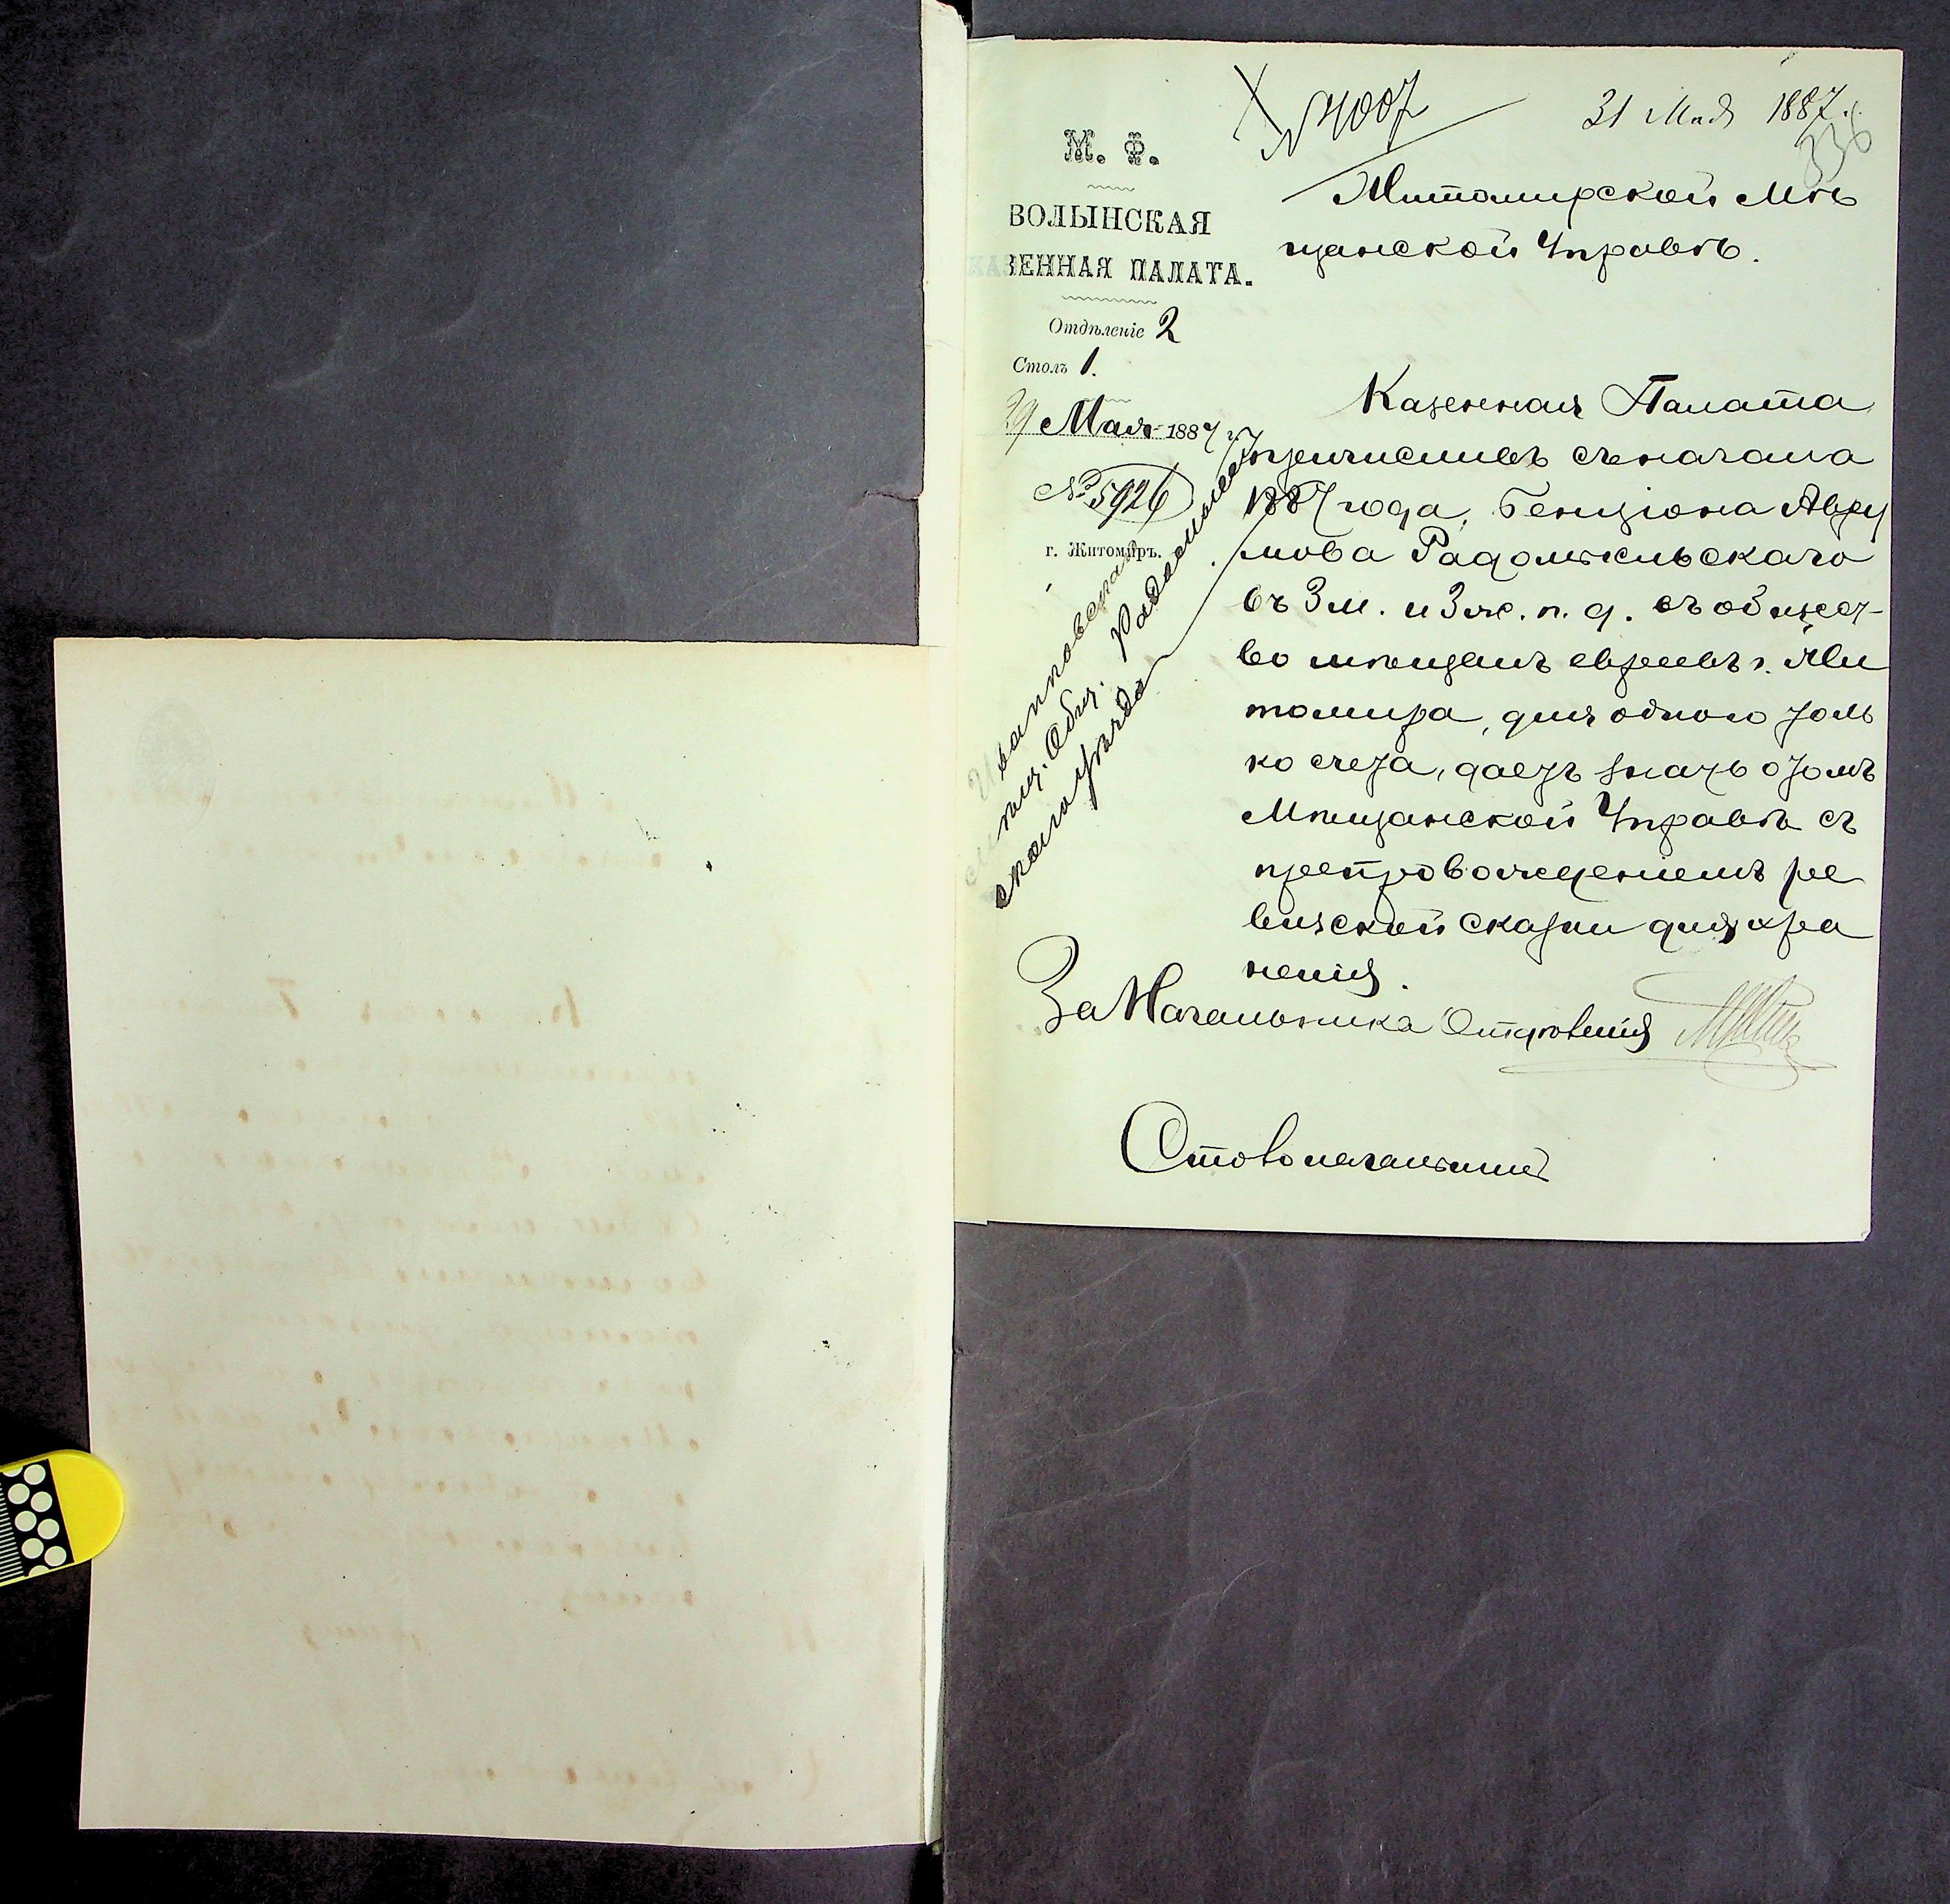 № 4007
31 Мая 1887 г.
336
М. Ф.
ВОЛЫНСКАЯ
КАЗЕННАЯ ПАЛАТА.
Отдѣленіе 2
Столъ 1.
29 Мая 1887 г.
№ 5926
г. Житоміръ.
Житомирской Мѣ
щанской Управѣ.
Казенная Палата
причисливъ съ начала
1887 года, Бенціона Авру
мова Радомысльскаго
съ 3 м. и 3 ж. п. д. въ общест-
во мѣщанъ евреевъ г. Жи
томира, для одного толь
ко счета, даетъ знать о томъ
Мѣщанской Управѣ съ
препровожденіемъ ре
визской сказки для хра
ненія.
За Начальника Отдѣленія
Столоначальникъ
мѣщ. Общ. Радомысль
скаго уѣзда